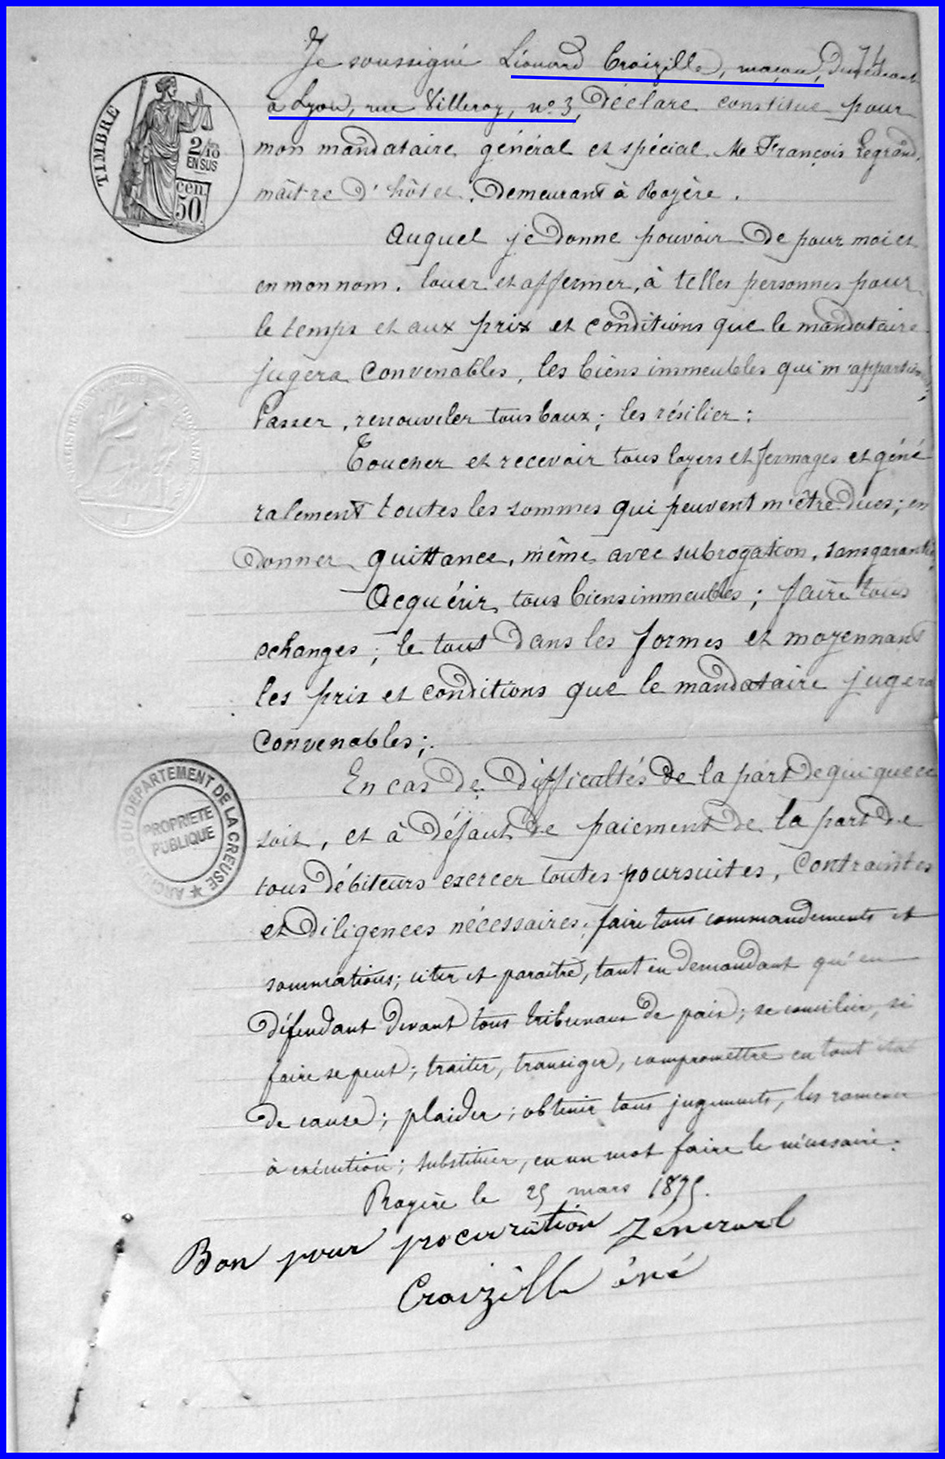 Je soussigné Léonard Croizille, maçon, demeurant
à Lyon, rue Villeroy, n° 3, déclare constitue pour
mon mandataire général et spécial Me François Legrand,
maître d'hôtel, demeurant à Royère.
Auquel je donne pouvoir de pour moi et
en mon nom, louer et affermer, à telles personnes pour
le temps et aux prix et conditions que le mandataire
jugera convenables, les biens immeubles qui m'appartiennent;
Passer, renouveler tous baux; les résilier;
Toucher et recevoir tous loyers et fermages et géné
ralement toutes les sommes qui peuvent m'être dues; en
donner quittance, même avec subrogation, sans garantie,
Acquérir tous biens immeubles; faire tous
echanges; le tout dans les formes et moyennant
les prix et conditions que le mandataire jugera
convenables;
En cas de difficultés de la part de qui que ce
soit, et à défaut de paiement de la part de
tous débiteurs exercer toutes poursuites, contraintes
et diligences nécessaires; faire tous commandements et
sommations; citer et paraître, tant en demandant qu'en
défendant devant tous tribunaux de paix; se concilier, si
faire se peut; traiter, transiger, compromettre en tout état
de cause; plaider; obtenir tous jugements, les ramener
à exécution; substituer, en un mot faire le nécessaire.
Royère le 25 mars 1895.
Bon pour procuration
Croizille
TIMBRE
2/10
EN SUS
cen.
50
DU DEPARTEMENT DE LA CREUSE
PROPRIETE
PUBLIQUE